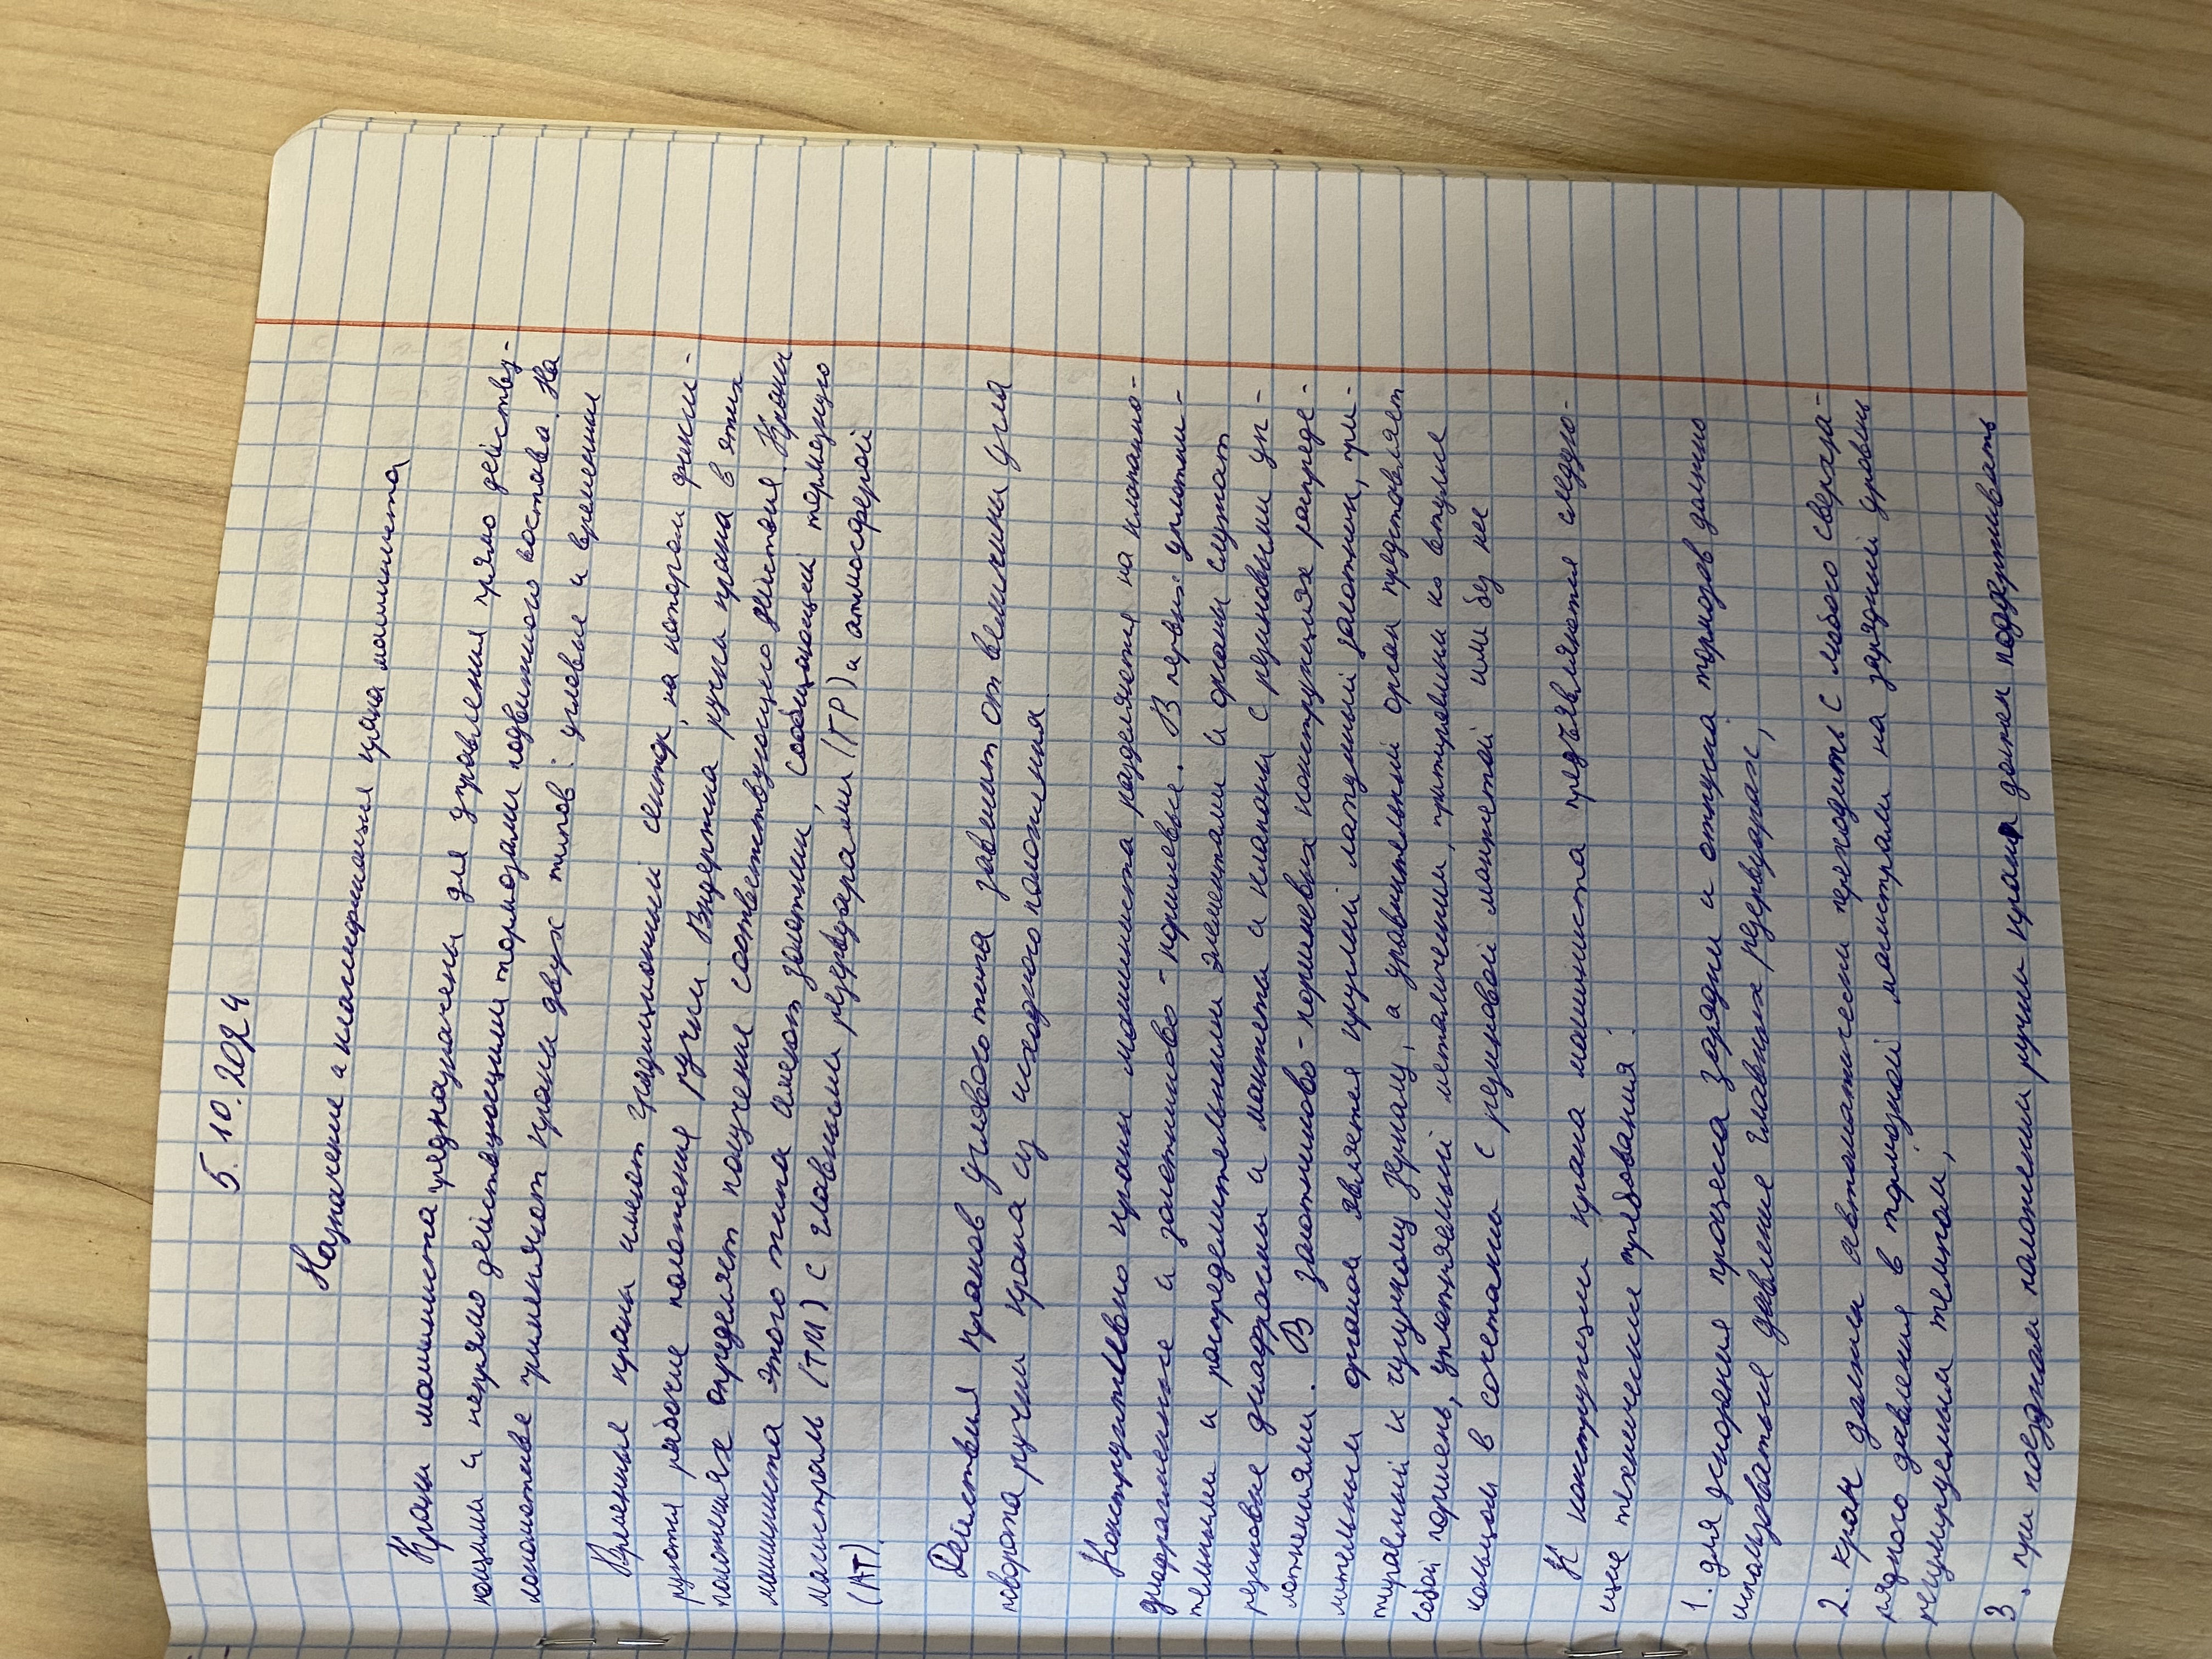 5.10.2024
Назначение и классификация крана машиниста
Краны машиниста преднazначены для управления прямо действу-
ющими и непрямо действующими тормозами подвижного состава. На
локомотиве применяют крана двух типов: угловые и временные
Временные краны имеют градационный сектор, на котором фикси-
руются рабочие положения ручки. Выдержка ручки крана в этих
положениях определяет получение соответствующего действия. Краны
машиниста этого типа имеют золотники, сообщающий тормозную
магистраль (ТМ) с главными резервуарами (ГР) и атмосферой
(АТ).
Действия кранов углового типа зависит от величины угла
поворота ручки крана из исходного положения.
Конструктивно краны машиниста разделяются на клапанно-
диафрагменные и золотниково-поршневые. В первых уплотни-
тельными и распределительными элементами и органы служат
резиновые диафрагмы и манжета и клапаны с резиновыми уп-
лотнениями. В золотниково-поршневых конструкциях распреде-
лительным органом является круглый латунный золотник, при-
тираемый к чугунному зеркалу, а уравнительный орган представляет
собой поршень, уплотняемый металлическим, притираемым по втулке
кольцом в сочетании с резиновой манжетой или без нее
К конструкции крана машиниста предъявляются следую-
щие технические требования:
1. для ускорения процесса зарядки и отпуска тормозов должно
использоваться давление главных резервуарах,
2. кран должен автоматически переходить с любого сверхза-
рядного давления в тормозной магистрали на зарядный уровень
регулируемым темпом,
3. при поездном положении ручки крана должен поддерживать